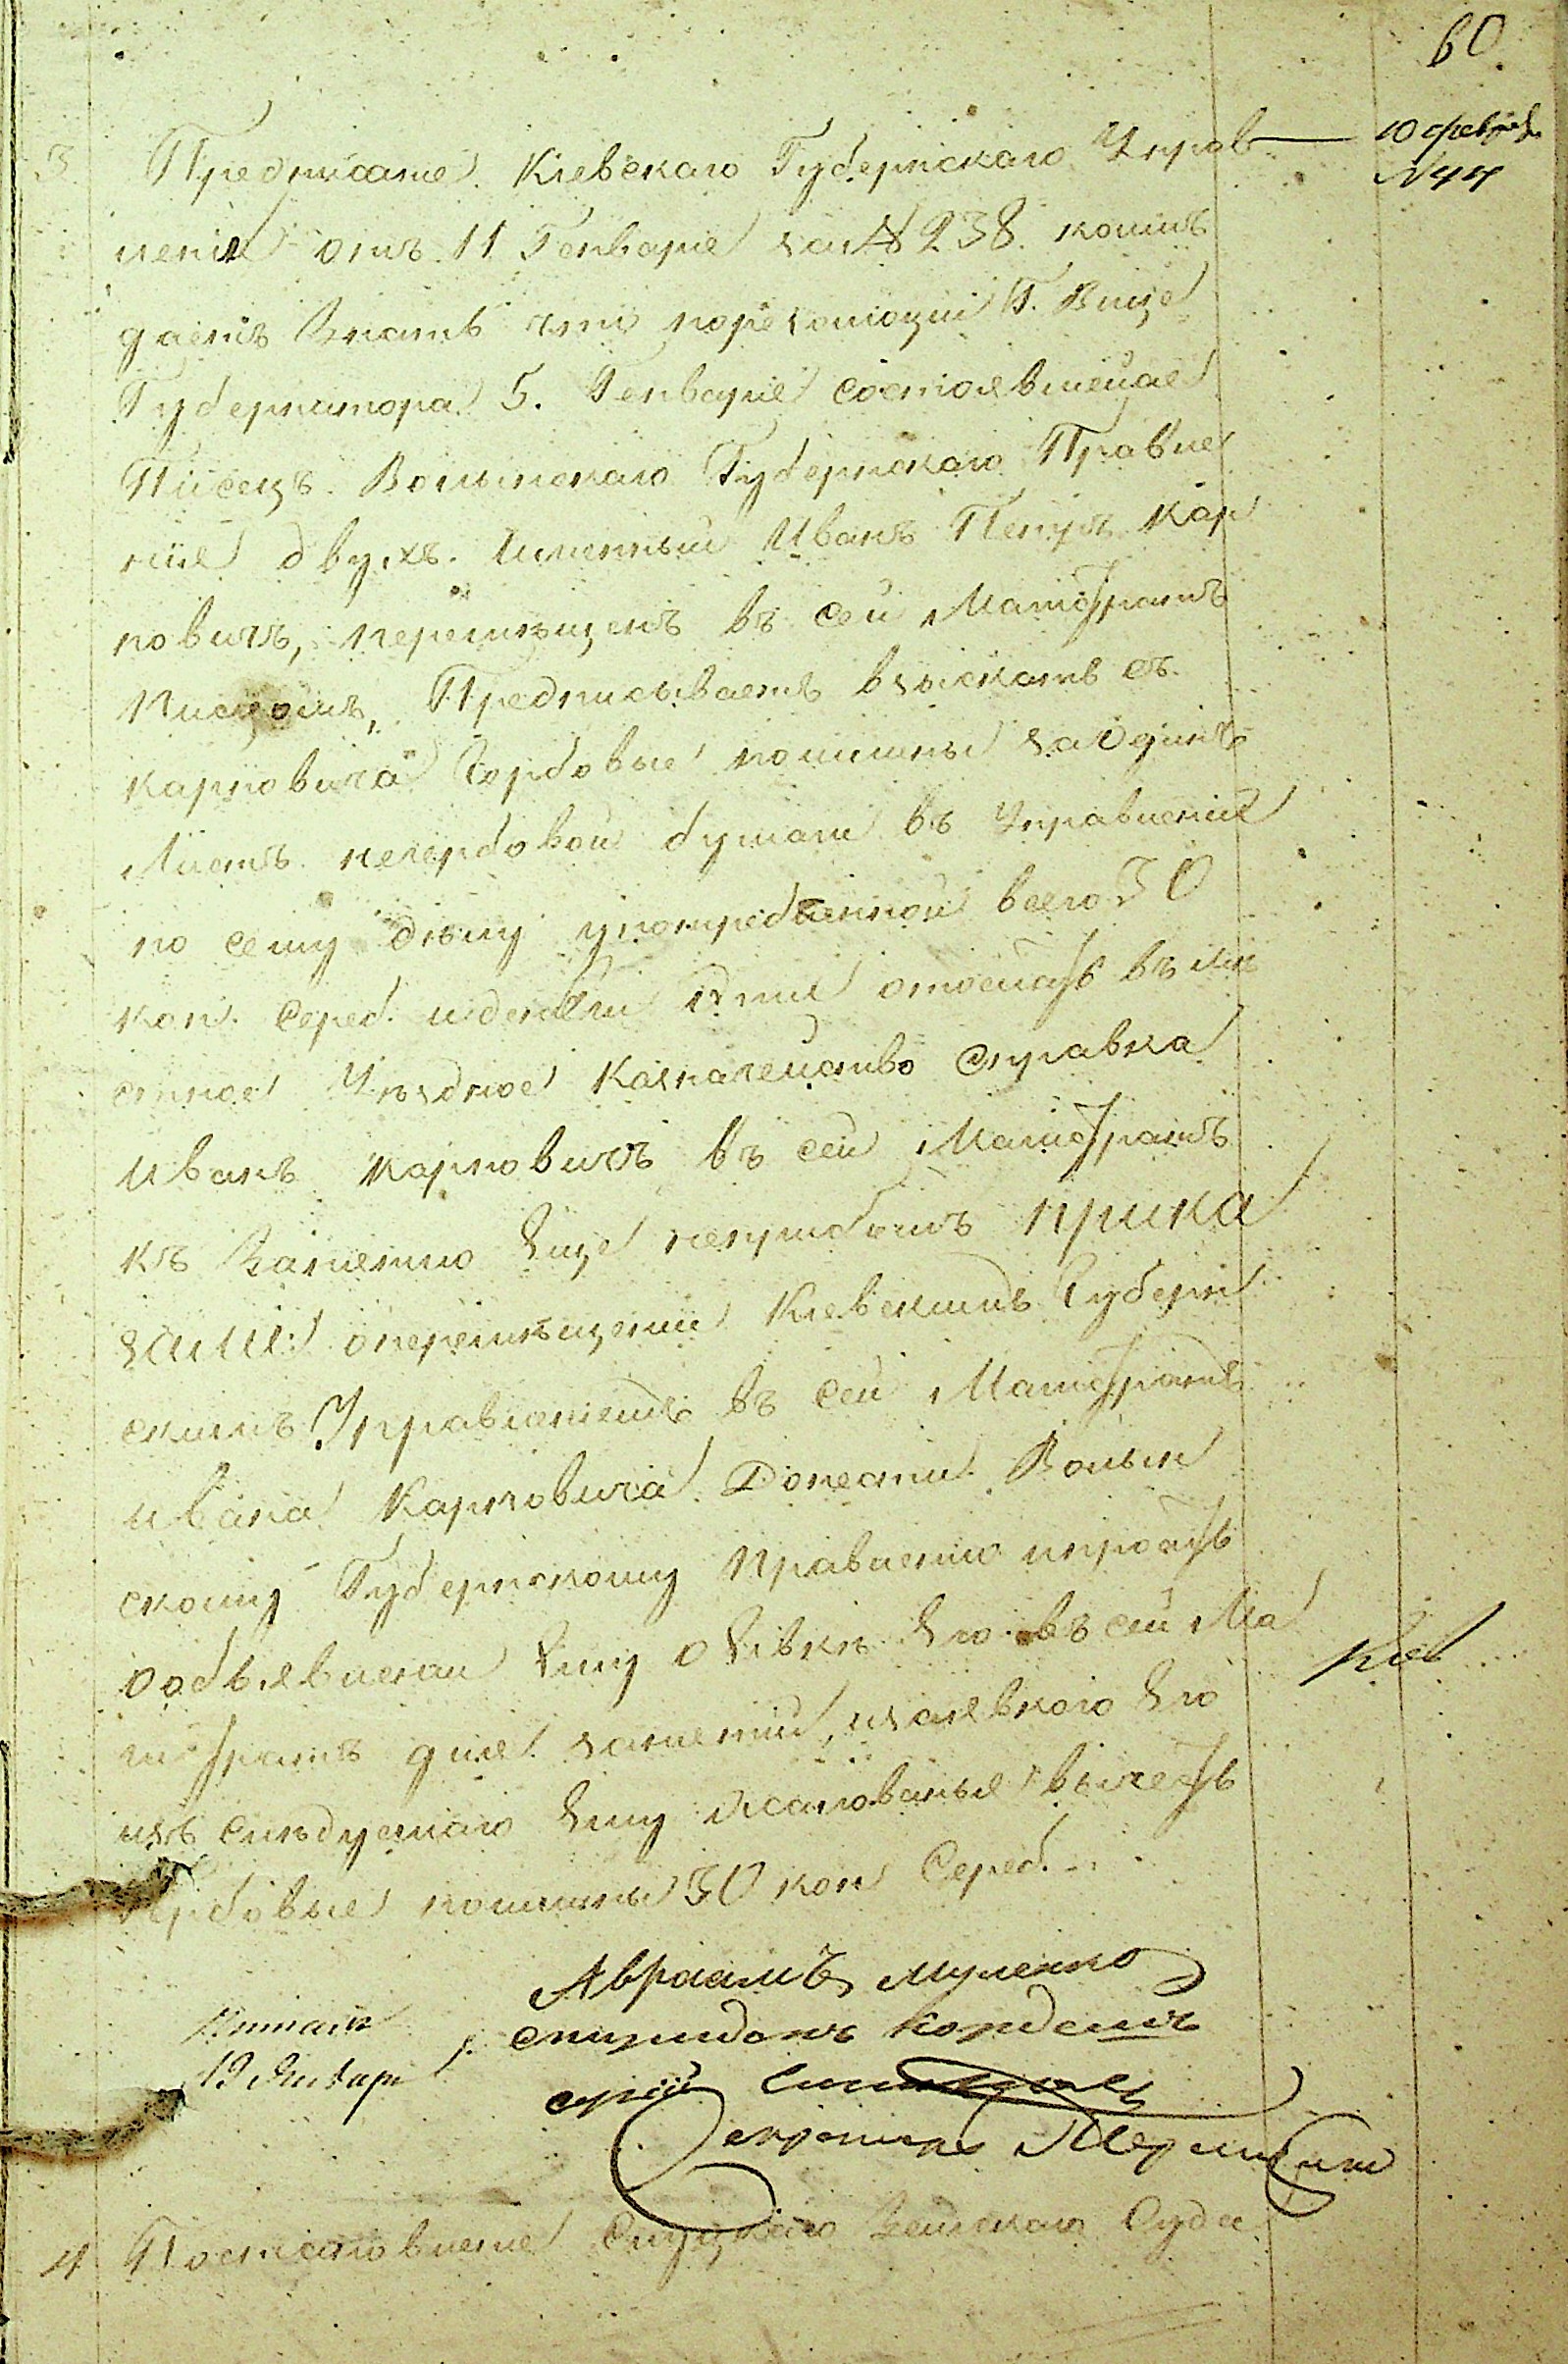 60.
10 февраля
№ 44
3. Предписание Кіевскаго Губернскаго Управ
ленія отъ 11 Генваря за № 238. коимъ
даетъ знать что по резолюціи Г. Вице
Губернатора 5. Генваря состоявшейся
Писецъ Волынскаго Губернскаго Правле
нія двухъ Именный Иванъ Петръ Кар
повичъ, перемѣщенъ въ сей Магистратъ
Писцомъ, Предписываетъ взыскать съ
Карповича Гербовые пошлины за Одинъ
Листъ негербовой бумаги въ Управленіи
по сему дѣлу употребленной всего 30
коп. сереб. и деньги отослать въ мѣ
стное Уѣздное Казначейство Справка
Иванъ Карповичъ въ сей Магистратъ
къ Занятію Еще неприбылъ прика
зали: о перемѣщеніи Кіевскимъ Губерн
скимъ Управленіемъ въ сей Магистратъ
Ивана Карповича Донести Волын
скому Губернскому Правленію и просить
о объявленіи Ему о Явкѣ Его въ сей Ма
гистратъ для занятій, и за явкою Его
изъ слѣдуемаго Ему жалованья вычесть
Гербовые пошлины 30 коп Сереб.
Кіев
Авраамъ
Спиридонъ
Читалъ
19 Января
Секретарь
4 Постановленіе Земскаго Суда